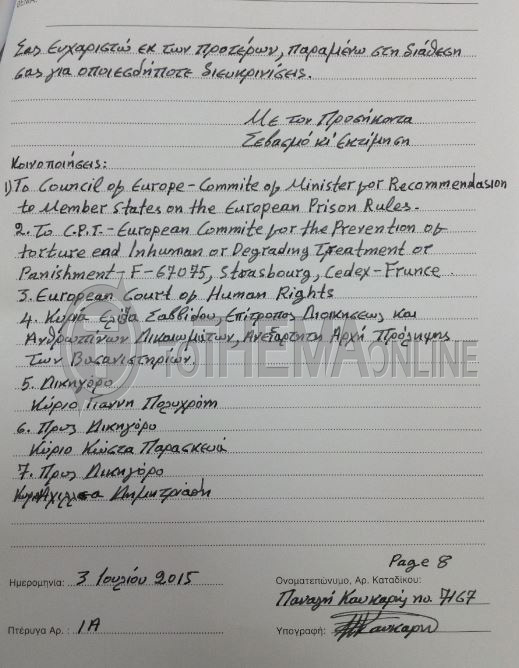 ΘΕΜΑ:
Σας Ευχαριστώ εκ των προτέρων, παραμένω στη διάθεση
σας για οποιεσδήποτε διευκρινίσεις.
Με τον Προσήκοντα
Σεβασμό κι' Εκτίμηση
Κοινοποιήσεις:
1) To Council of Europe - Commite of Minister for Recommendasion
to Member States on the European Prison Rules.
2. To C.P.T. - European Commite for the Prevention of
torture end Inhuman or Degrading Treatment or
Panishment - F-67075, Strasbourg, Cedex - France
3. European Court of Human Rights
4. Κυρία Ελίζα Σαββίδου, Επίτροπος Διοικήσεως και
Ανθρωπίνων Δικαιωμάτων, Ανεξάρτητη Αρχή Πρόληψης
των Βασανιστηρίων
THEMA ONLINE
5. Δικηγόρο
Κύριο Γιάννη Πολυχρόνη
6. Προς Δικηγόρο
Κύριο Κώστα Παρασκευά
7. Προς Δικηγόρο
Δημητριάδη
Page 8
Ημερομηνία: 3 Ιουλίου 2015
Ονοματεπώνυμο, Αρ. Καταδίκου:
Παναγή Καυκαρής no. 7167
Πτέρυγα Αρ.: 1Α
Υπογραφή: Καυκαρή